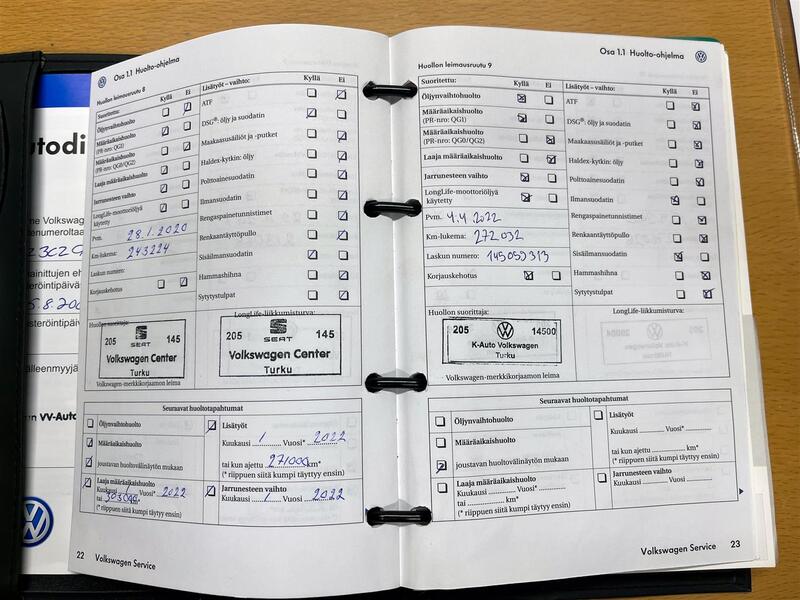 Osa 1.1 Huolto-ohjelma
Huollon leimausruutu 8
Suoritettu: Kyllä Ei
Öljynvaihtohuolto
Määräaikaishuolto
(PR-nro: QG1)
Määräaikaishuolto
(PR-nro: QG0/QG2)
Laaja määräaikaishuolto
Jarrunesteen vaihto
LongLife-moottoriöljyä
käytetty
Pvm. 28.1.2020
Km-lukema: 243224
Laskun numero:
Korjauskehotus
Lisätyöt – vaihto: Kyllä Ei
ATF
DSG®: öljy ja suodatin
Maakaasusäiliöt ja -putket
Haldex-kytkin: öljy
Polttoainesuodatin
Ilmansuodatin
Rengaspainetunnistimet
Renkaantäyttöpullo
Sisäilmansuodatin
Hammashihna
Sytytystulpat
Huollon suorittaja:
205 145
SEAT
Volkswagen Center
Turku
Volkswagen-merkkikorjaamon leima
LongLife-liikkumisturva:
205 145
SEAT
Volkswagen Center
Turku
Seuraavat huoltotapahtumat
Öljynvaihtohuolto
Määräaikaishuolto
joustavan huoltovälinäytön mukaan
Laaja määräaikaishuolto
Kuukausi Vuosi* 2022
tai 303000 km*
(* riippuen siitä kumpi täyttyy ensin)
Lisätyöt
Kuukausi 1 Vuosi* 2022
tai kun ajettu 271000 km*
(* riippuen siitä kumpi täyttyy ensin)
Jarrunesteen vaihto
Kuukausi 1 Vuosi 2022
22 Volkswagen Service
Osa 1.1 Huolto-ohjelma
Huollon leimausruutu 9
Suoritettu: Kyllä Ei
Öljynvaihtohuolto
Määräaikaishuolto
(PR-nro: QG1)
Määräaikaishuolto
(PR-nro: QG0/QG2)
Laaja määräaikaishuolto
Jarrunesteen vaihto
LongLife-moottoriöljyä
käytetty
Pvm. 4.4.2022
Km-lukema: 272032
Laskun numero: 145059313
Korjauskehotus
Lisätyöt – vaihto: Kyllä Ei
ATF
DSG®: öljy ja suodatin
Maakaasusäiliöt ja -putket
Haldex-kytkin: öljy
Polttoainesuodatin
Ilmansuodatin
Rengaspainetunnistimet
Renkaantäyttöpullo
Sisäilmansuodatin
Hammashihna
Sytytystulpat
Huollon suorittaja:
205 14500
K-Auto Volkswagen
Turku
Volkswagen-merkkikorjaamon leima
LongLife-liikkumisturva:
Seuraavat huoltotapahtumat
Öljynvaihtohuolto
Määräaikaishuolto
joustavan huoltovälinäytön mukaan
Laaja määräaikaishuolto
Kuukausi Vuosi*
tai km*
(* riippuen siitä kumpi täyttyy ensin)
Lisätyöt
Kuukausi Vuosi*
tai kun ajettu km*
(* riippuen siitä kumpi täyttyy ensin)
Jarrunesteen vaihto
Kuukausi Vuosi
Volkswagen Service 23